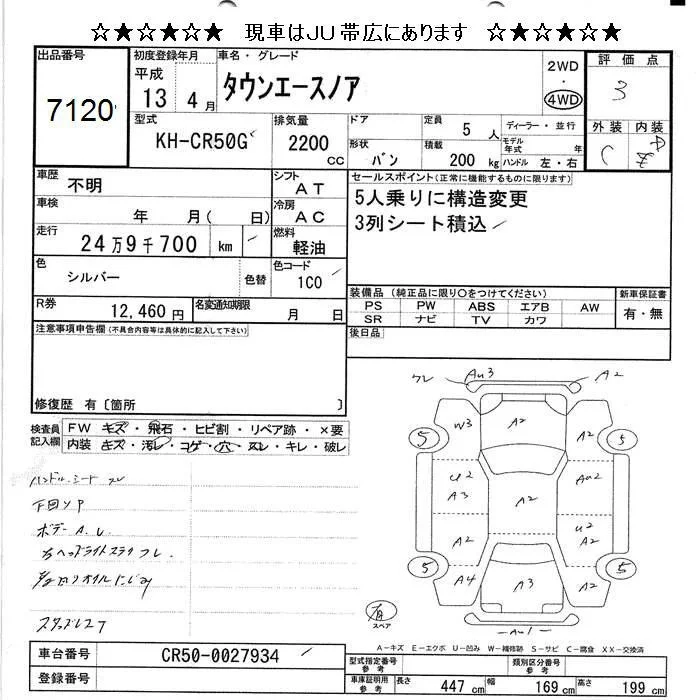 ☆★☆★☆★ 現車はJU帯広にあります ☆★☆★☆★
出品番号
7120
初度登録年月
平成
13 4月
車名・グレード
タウンエースノア
2WD
・
4WD
評価点
3
外装 内装
C D E
型式
KH-CR50G
排気量
2200
CC
ドア
形状
バン
定員
5人
積載
200kg
ディーラー・並行
モデル年式 年
ハンドル 左・右
車歴
不明
車検
年 月( 日)
走行
24万9千700 km
色
シルバー
色替
シフト
AT
冷房
AC
燃料
軽油
色コード
1C0
セールスポイント(正常に機能するものに限ります)
5人乗りに構造変更
3列シート積込
装備品(純正品に限り○をつけてください)
PS PW ABS エアB AW
SR ナビ TV カワ
新車保証書
有・無
後日品
R券
12,460円
名変通知期限
月 日
注意事項申告欄(不具合内容等は具体的に記入して下さい)
修復歴 有〔箇所 〕
検査員記入欄
FW キズ・飛石・ヒビ割・リペア跡・×要
内装 キズ・汚レ・コゲ・穴・スレ・キレ・破レ
ハンドル、シート スレ
下回りP
ボデー A.U.
スタッドレス7
ワレ Au3 A2
W3 A2 A2
5 5
U2 A3 A2 Au2
A2 U2 A2
5 5
A4 A3 A2
有
スペア
Au1
A-キズ E-エクボ U-凹み W-補修跡 S-サビ C-腐食 XX-交換済
車台番号
CR50-0027934
登録番号
型式指定番号 参考
類別区分番号 参考
車庫証明用 参考
長さ 447cm 幅 169cm 高さ 199cm